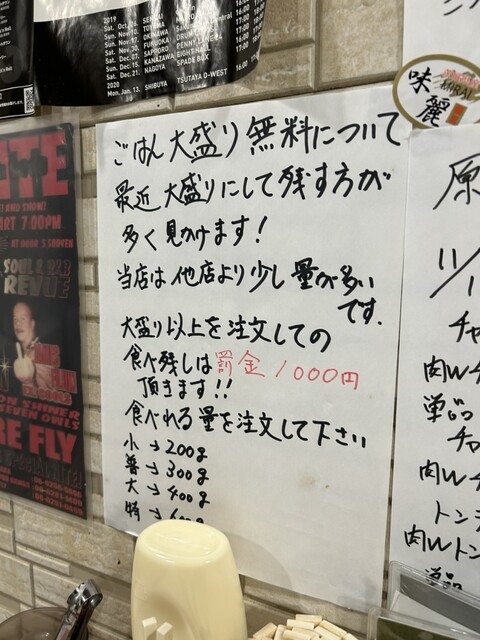 2019
Sat. Oct.26. SENDAI
Sun. Nov.10. TOYAMA
Sun. Nov.17. OKINAWA
Sat. Nov.30. FUKUOKA
Sat. Dec.07. SAPPORO PENNY LANE 24
Sun. Dec.15. KANAZAWA EIGHT HALL
Sat. Dec.21. NAGOYA SPADE BOX
2020
Mon. Jan. 13. SHIBUYA TSUTAYA O-WEST
START 7.00PM
SOUL & R&B
REVUE
ON SHINER
SEVEN OWLS
RE FLY
ごはん大盛り無料について
最近大盛りにして残す方が
多く見かけます!
当店は他店より少し量が多い
です.
大盛り以上を注文しての
食べ残しは罰金1000円
頂きます!!
食べれる量を注文して下さい
小→200g
普→300g
大→400g
特→600g
味麗
原
11/1
チャ
肉Wチ
単品
チャ
肉Wチ
トンテ
肉Wトン
単品